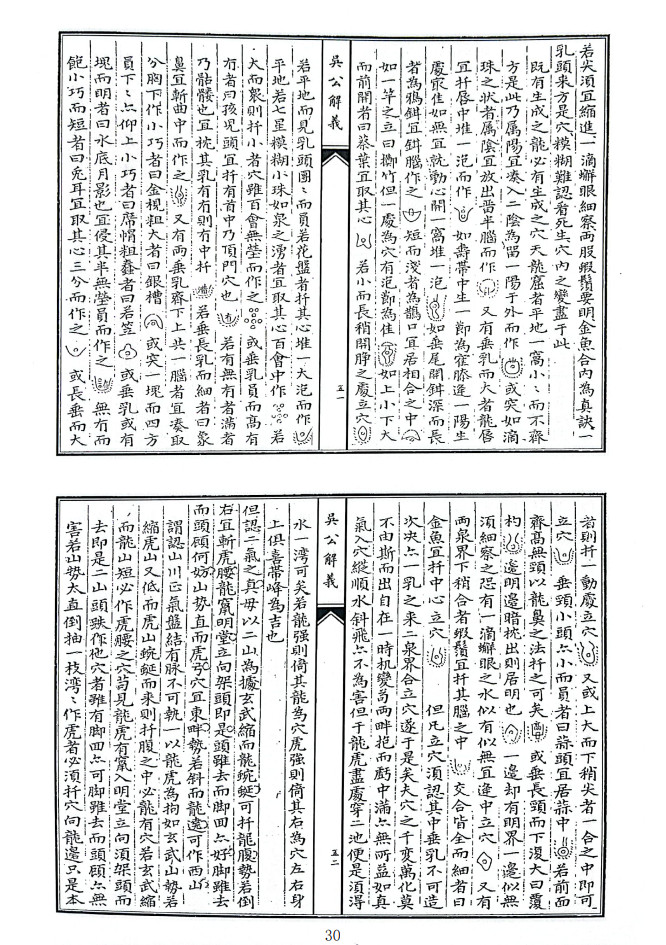 若尖湏宜縮進一滴蠏眼細察两股蝦鬚要明金魚合内為真訣一
乳頭来方是穴模糊難認看死生穴内之變盡于此
既有生成之龍必有生成之穴天龍窟者平地一窩小〻而不齊
方是此乃属陽宜凑入二陰為畱一陽于外而作 或突如滴
珠之状者属陰宜放出凿半腦而作 又有垂乳而大者龍唇
宜扦唇中堆一泡而作 如壽帶中生一節為寉膝邊一陽生
處佳如無宜就動心開一窩堆一泡 如垂尾開鉗深而長
者為鴉鉗宜鉗腦作之 短而淺者為鸛口宜居相合之中
如一竿之立曰擲竹但一處為穴有泡節為佳 如上小下大
而前開者曰葉宜取其心 若小而長稍開睜之處立穴
吳公解義
五一
若平地而見乳頭團〻而員若花盤者扦其心堆一大泡而作
平地若七星模糊小珠如泉之湧者宜取其心百會中作 若
大而衆則扦小者穴雖百會無塋而作之 或垂乳員而高有
有者曰孩兒頭宜扦有首中乃頂門穴也 若有無有者滿者
乃骷髏也宜枕其乳有有則有中扦 若垂長乳而細者曰象
鼻宜斬曲中而作之 又有两垂乳齊下上共一腦者宜凑取
分胸下作小巧者曰金梘粗大者曰銀槽 或突一塊而四方
員下〻仰上小巧者曰蓆帽粗蠢者曰若笠 或垂乳或有
塊而明者曰水底月影也宜侵其半無塋員而作之 無有而
飽小巧而短者曰兎耳宜取其心三分而作之 或長垂而大
者則扦一動處立穴 又或上大而下稍尖者一合之中即可
立穴 垂頸小頭〻小而員者曰蒜頭宜居蒜中 若前面
齊髙無頭以龍鼻之法扦之可矣 或垂長頸而下復大曰覆
杓 邊明邊暗枕出則居明也 一邊却有明界一邊似無
湏細察之恐有一滴蠏眼之水似有似無宜逢中立穴 又有
两泉界下稍合者蝦鬚宜扦其腦之中 交合皆全而細者曰
金魚宜扦中心立穴 但凡立穴須認其中垂乳不可造
次夬〻一乳之来二泉界合立穴遂于是矣大穴之千變萬化莫
不由斯而出自在一時机變荀两畔抱而戱中滿〻無所益如真
氣入穴縱順水斜飛〻不為害但于龍虎盡處穿二池便是湏得
吳公解義
五二
水一湾可矣若龍強則倚其龍為穴虎強則倚其右為穴左右身
上俱喜帶峰為吉也
但認二氣之真毋以二山為據玄武縮而龍蜿蜒可扦龍腹勢若倒
右宜斬虎腰龍竄明堂立向架頭即是頭雖去而脚囬〻好脚雖去
而頭顧何妨山势直而虎弓穴宜東畔勢若斜而龍遶可作西山
謂認山川正氣盤結有脉不可執一以龍虎為拘如玄武山勢若
縮虎山又低而虎山蜿蜒而来則扦腹之中必龍有穴若玄武縮
而龍山短必作虎腰之穴荀見龍虎有竄入明堂立向湏架頭而
去即是二山頭琺作他穴者雖有脚囬〻可脚雖去而頭顧〻無
害若山勢太直倒抽一枝湾〻作虎者必湏扦穴向龍邊只是本
30